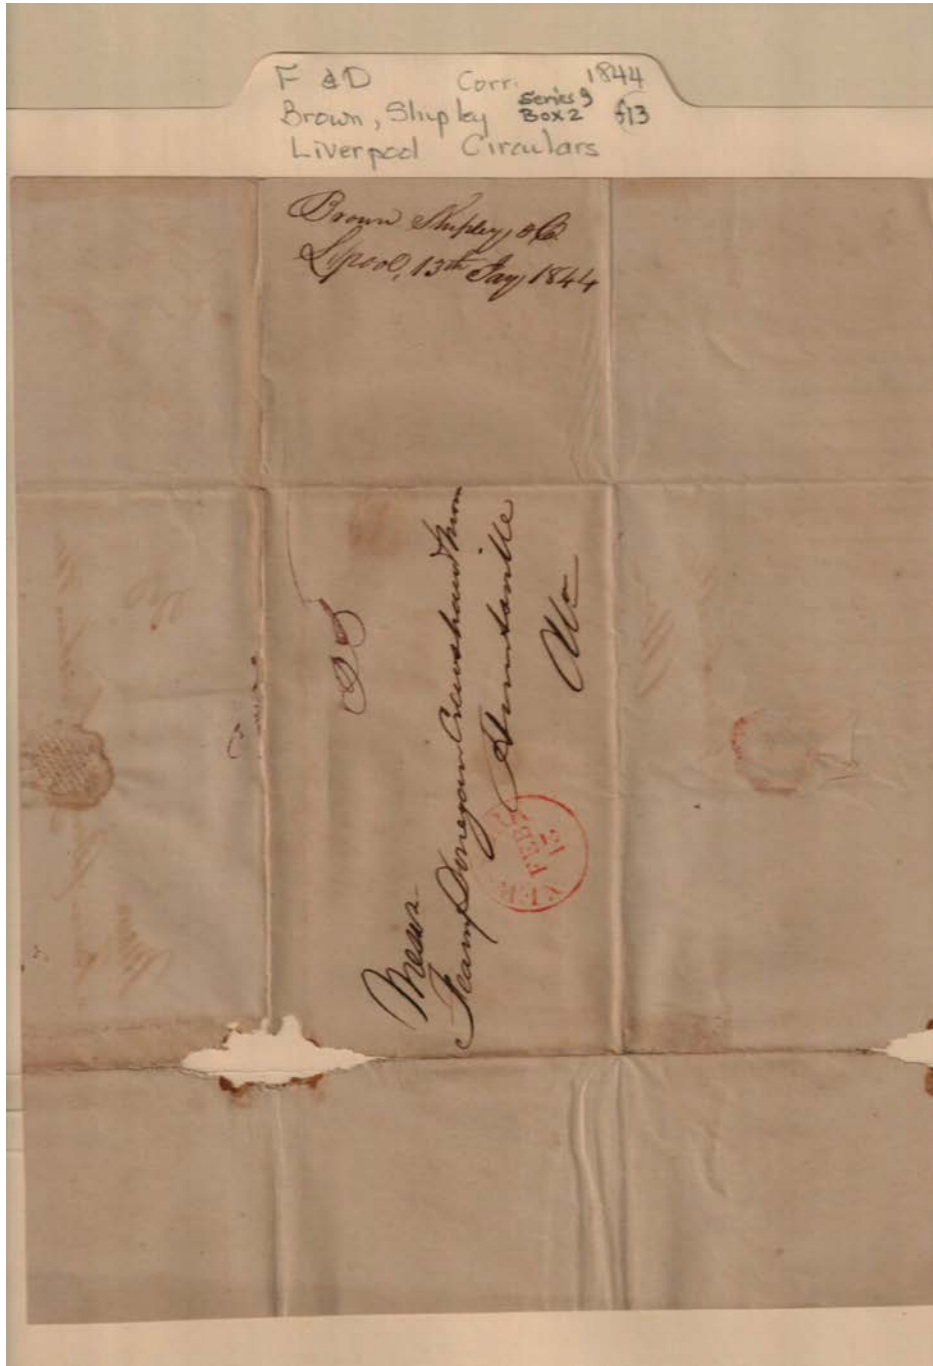 F & D Corr. 1844
Brown, Shipley Series 9 Box 2 f13
Liverpool Circulars
Brown Shipley & Co.
Lpool, 13th Jay 1844
25
Messrs
Fearn Donegan Crenshaw &
Huntsville
Ala
NEW
FEB